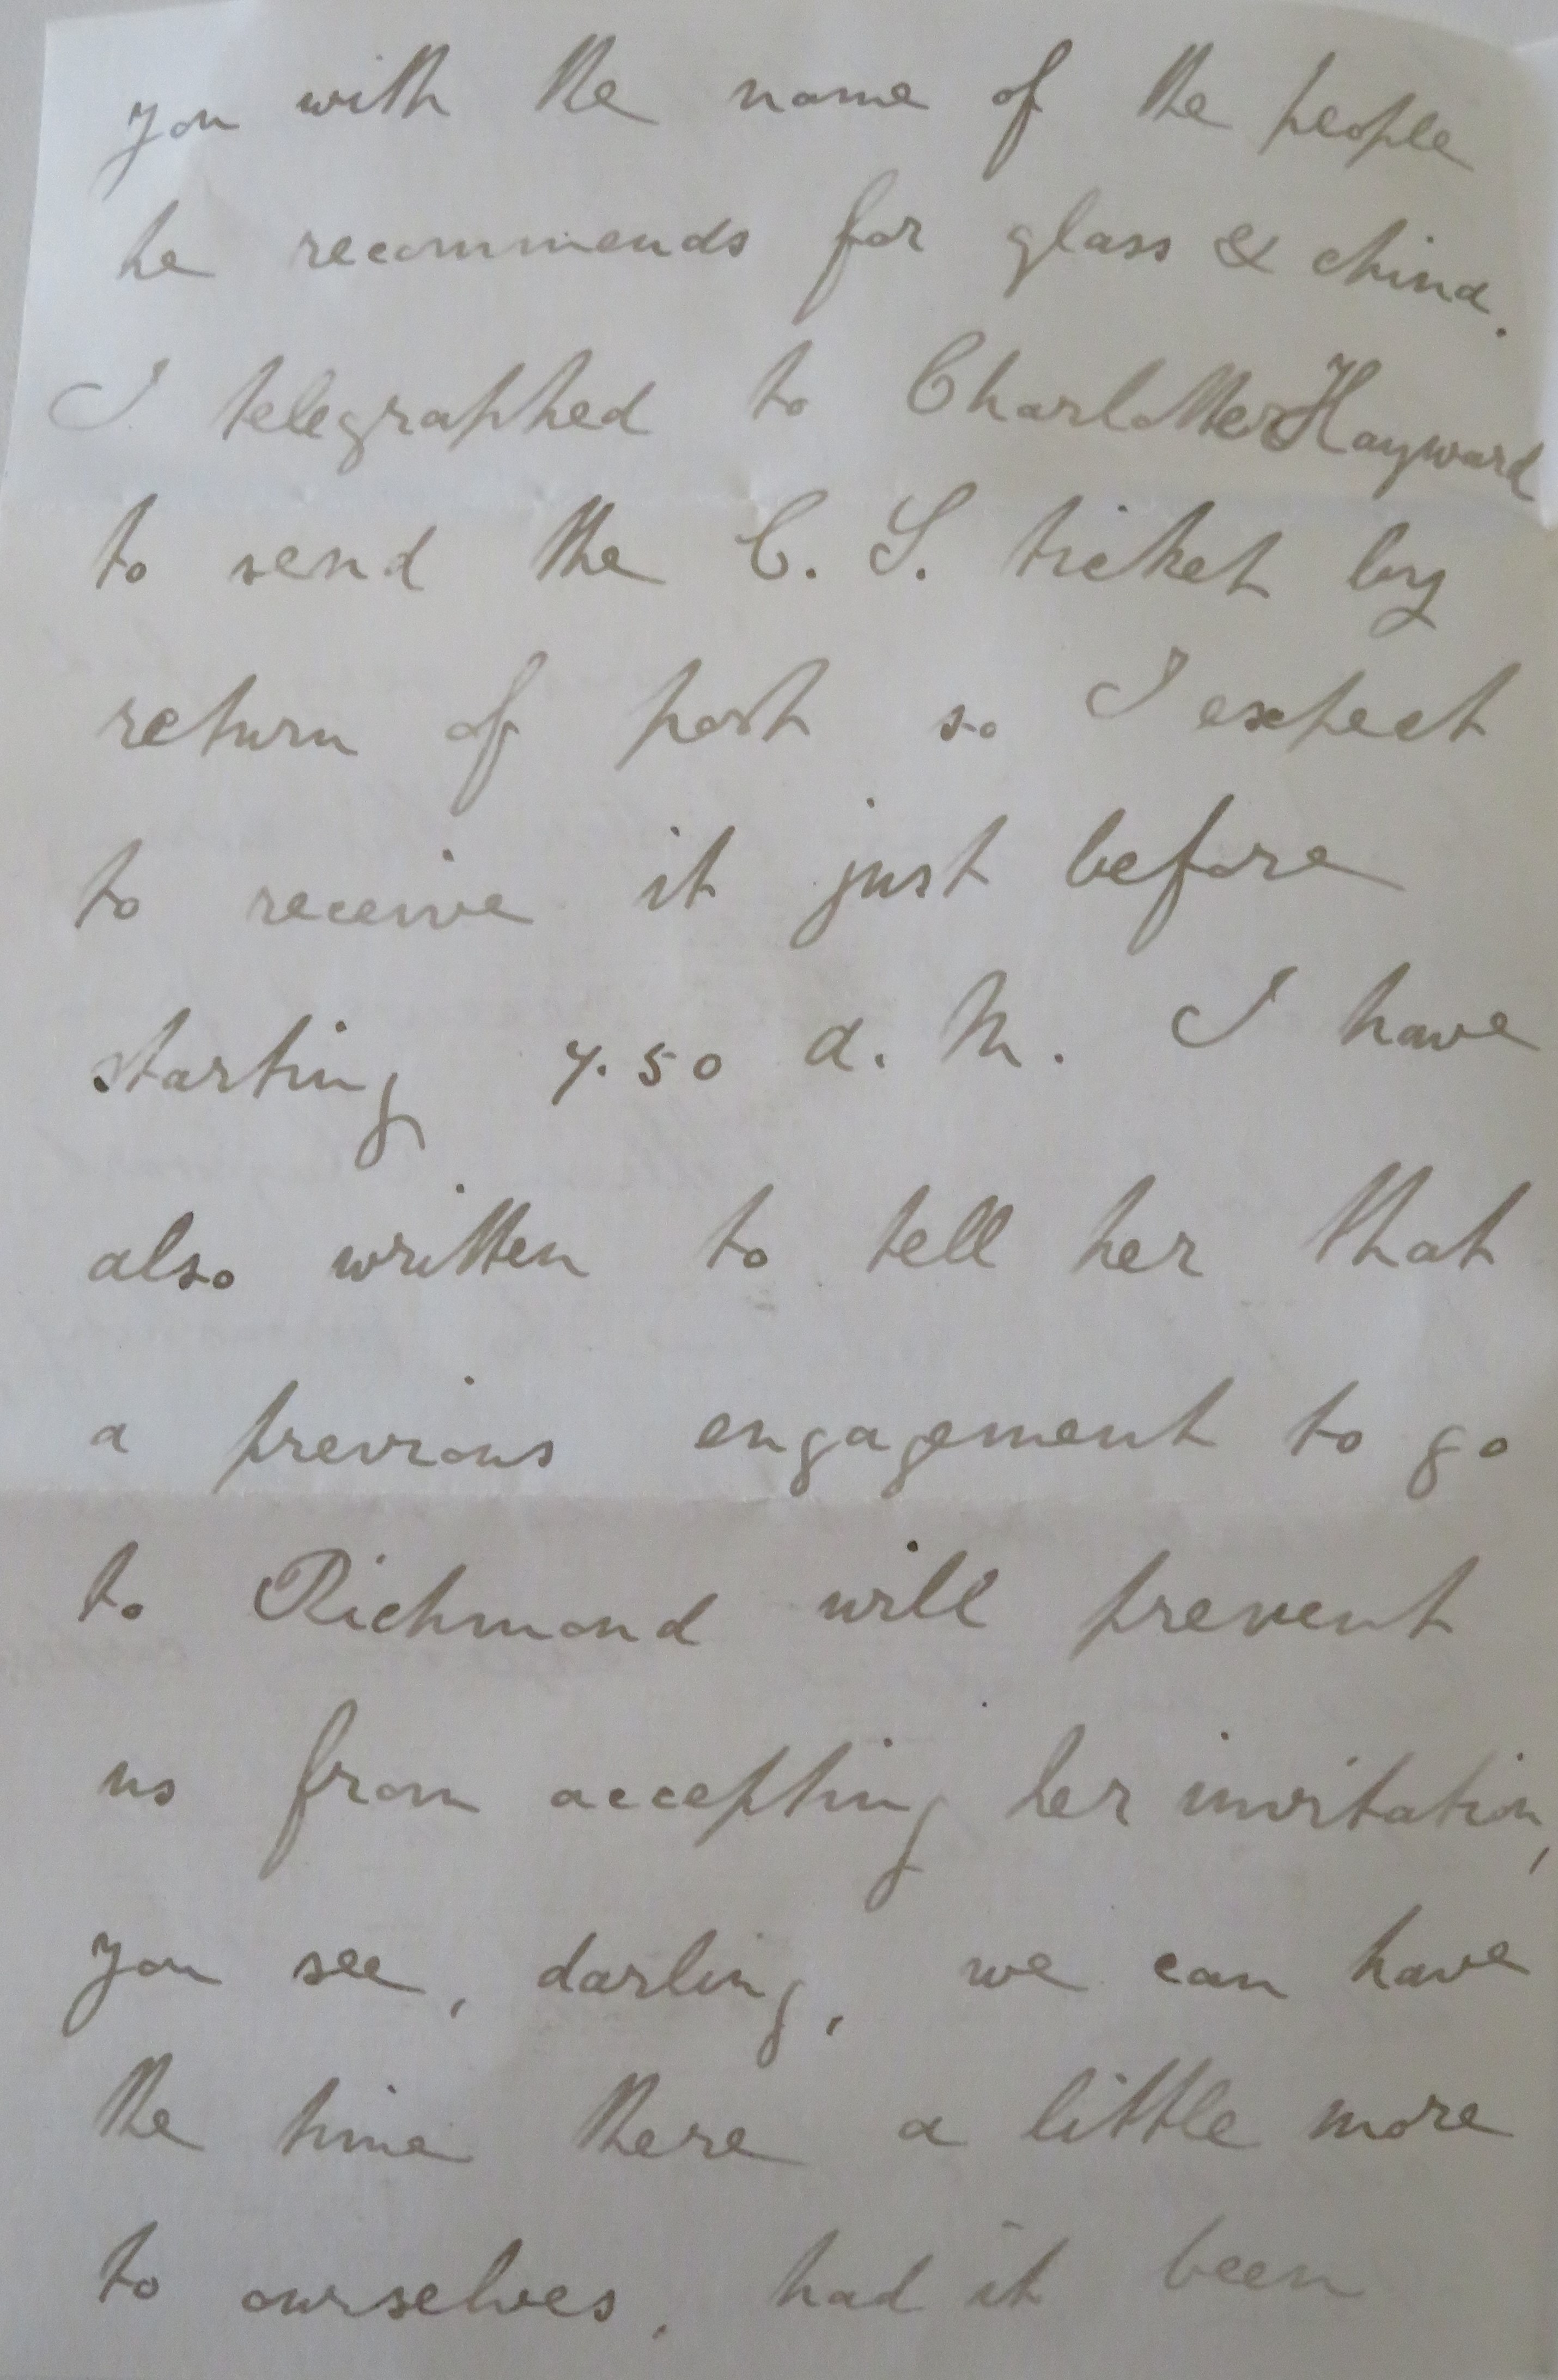 you with the name of the people
he recommends for glass & china.
I telegraphed to Charlotte Hayward
to send the C. S. ticket by
return of post so I expect
to receive it just before
starting 7.50 a.m. I have
also written to tell her that
a previous engagement to go
to Richmond will prevent
us from accepting her invitation,
you see, darling, we can have
the time there a little more
to ourselves, had it been